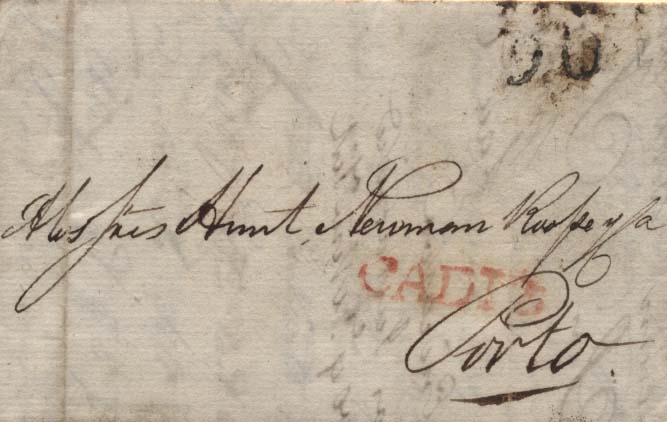 90
A los Sres Hunt, Newman Roope y Ca
CADIZ
Porto.